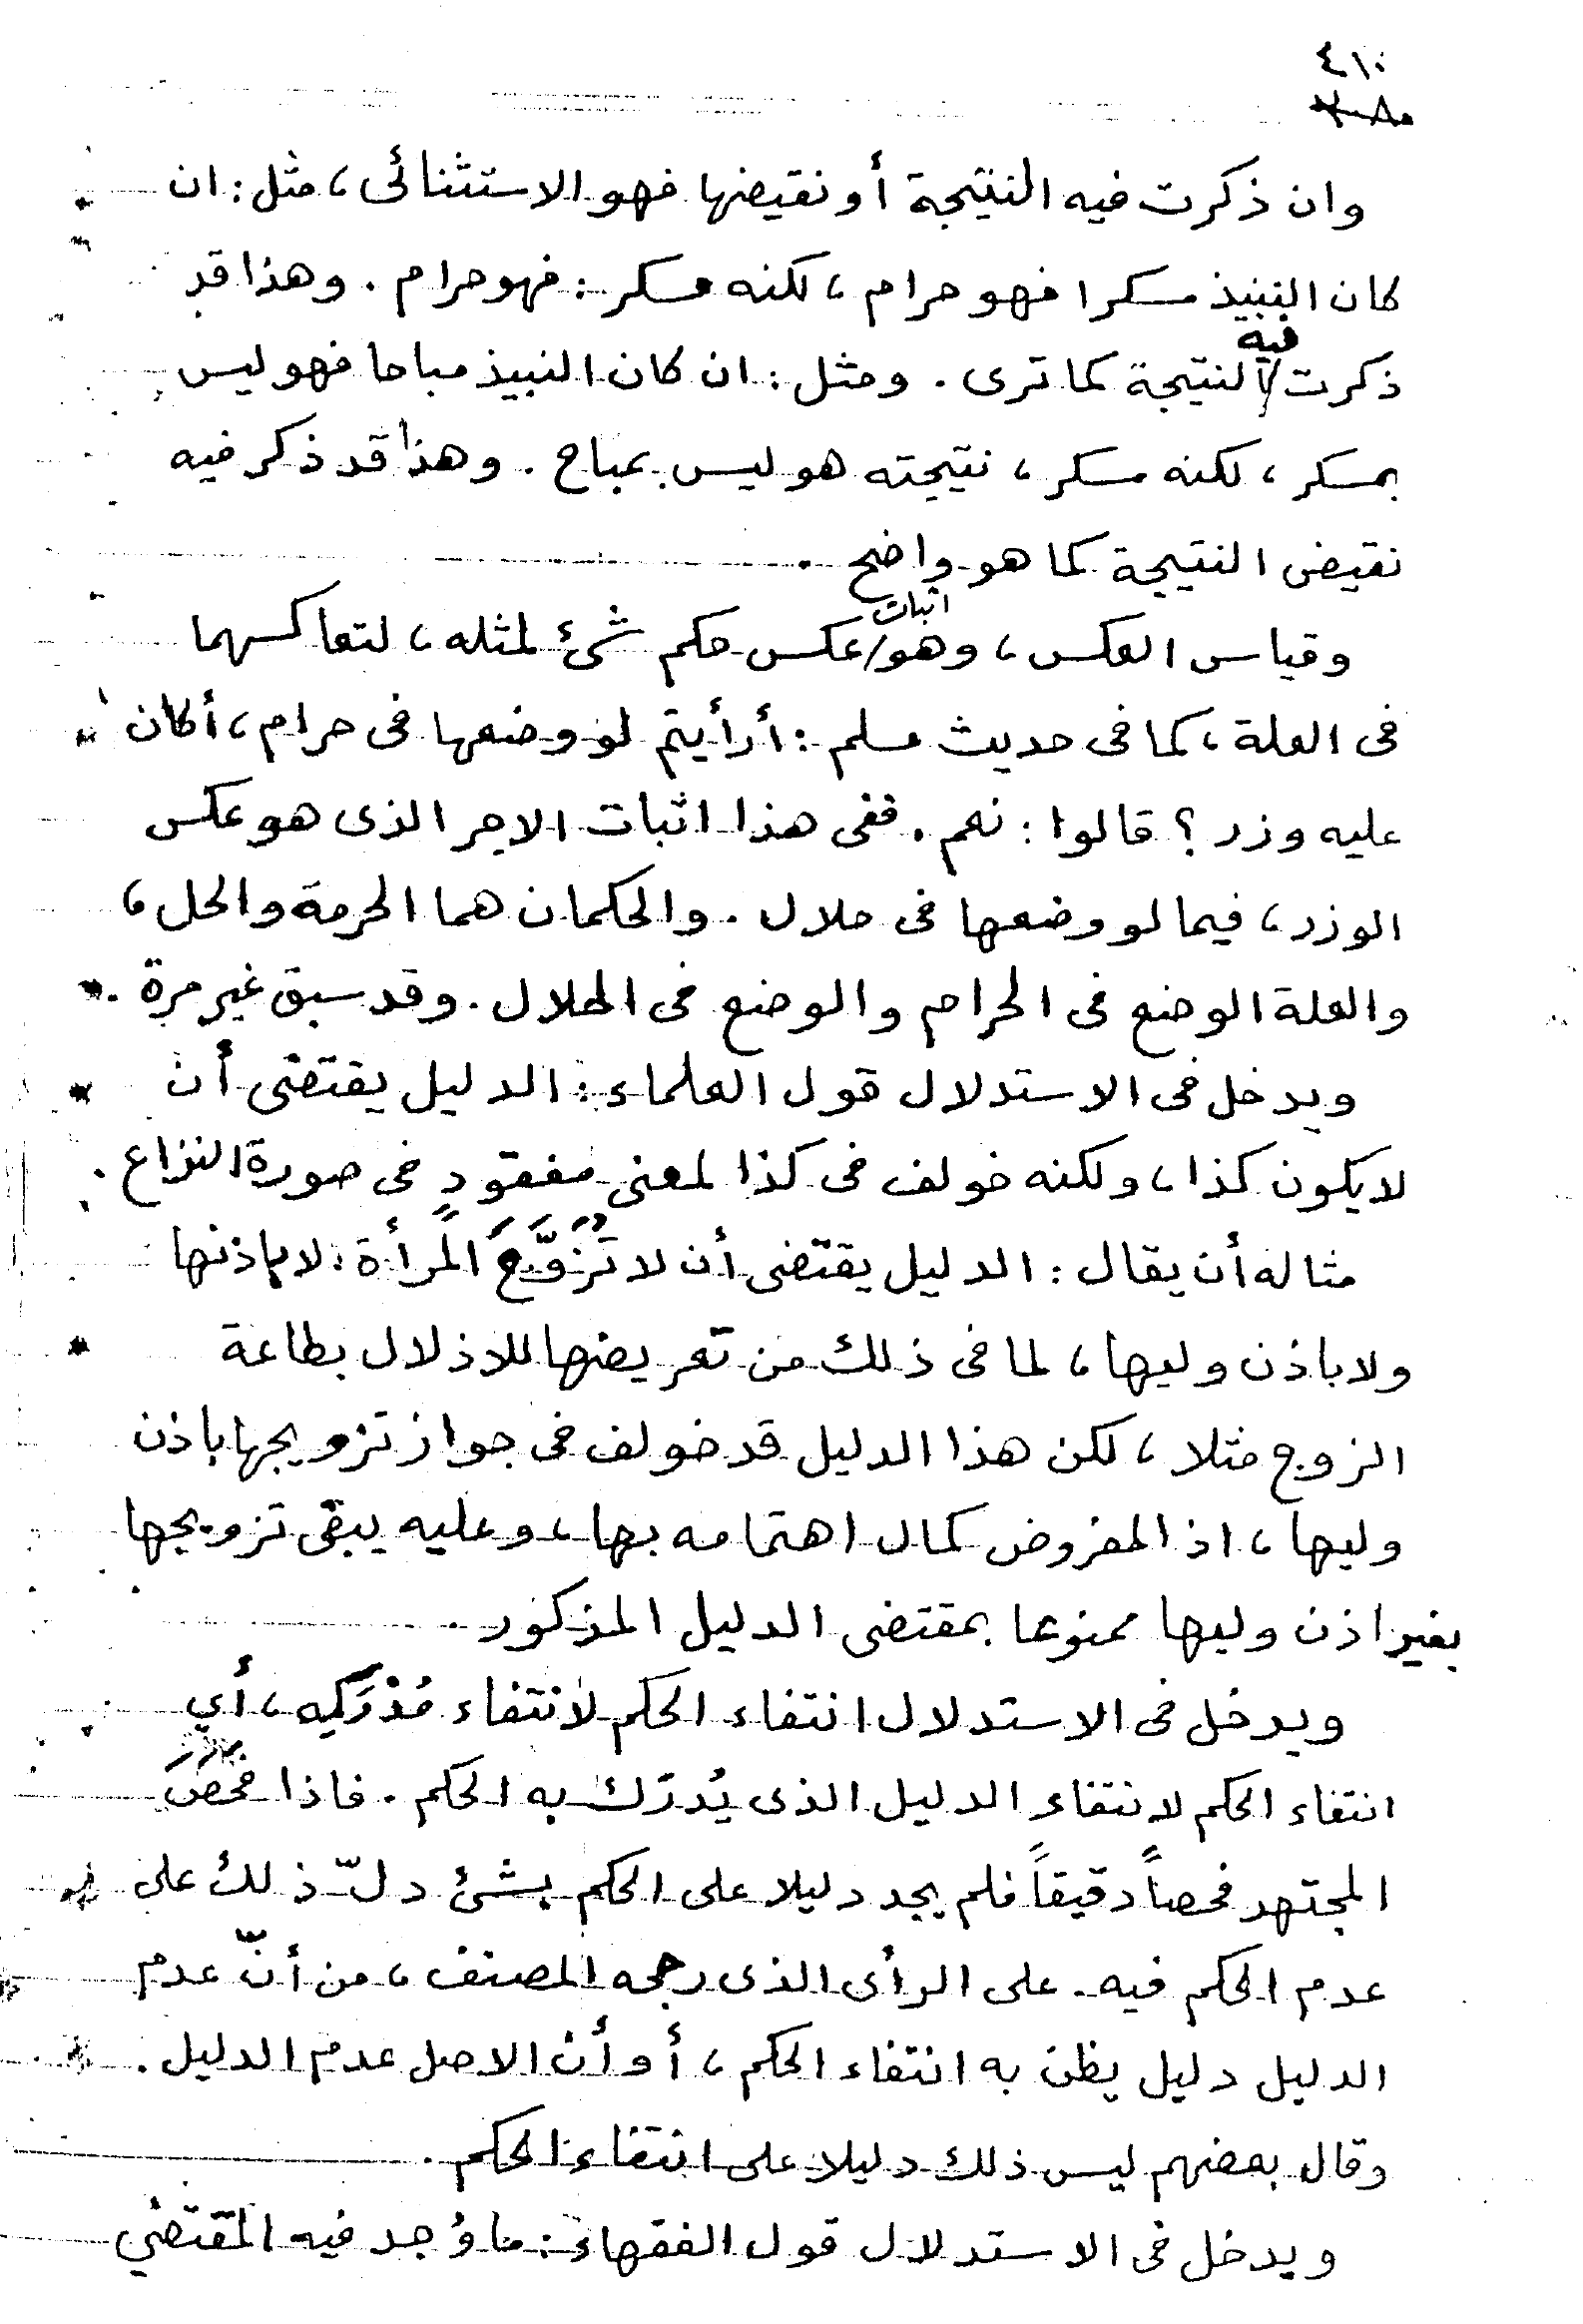 ٤١٠
وان ذكرت فيه النتيجة أو نقيضها فهو الاستثنائى، مثل: ان
كان النبيذ مسكرا فهو حرام، لكنه مسكر: فهو حرام. وهذا قد
ذكرت فيه النتيجة كما ترى. ومثل: ان كان النبيذ مباحا فهو ليس
بمسكر، لكنه مسكر، نتيجته هو ليس بمباح. وهذا قد ذكر فيه
نقيض النتيجة كما هو واضح.
وقياس العكس، وهو اثبات عكس حكم شئ لمثله، لتعاكسهما
فى العلة، كما فى حديث مسلم: أرأيتم لو وضعها فى حرام، أكان
عليه وزر؟ قالوا: نعم. ففى هذا اثبات الاجر الذى هو عكس
الوزر، فيما لو وضعها فى حلال. والحكمان هما الحرمة والحل،
والعلة الوضع فى الحرام والوضع فى الحلال. وقد سبق غير مرة.
ويدخل فى الاستدلال قول العلماء: الدليل يقتضى أن
لا يكون كذا، ولكنه خولف فى كذا لمعنى مفقودٍ فى صورة النزاع.
مثاله أن يقال: الدليل يقتضى أن لا تُزَوَّجَ المرأة لا بإذنها
ولا باذن وليها، لما فى ذلك من تعريضها للاذلال بطاعة
الزوج مثلا، لكن هذا الدليل قد خولف فى جواز تزويجها باذن
وليها، اذ المفروض كمال اهتمامه بها، وعليه يبقى تزويجها
بغير اذن وليها ممنوعا بمقتضى الدليل المذكور.
ويدخل فى الاستدلال انتفاء الحكم لانتفاء مُدْرَكِه، أي
انتفاء الحكم لانتفاء الدليل الذى يُدرَك به الحكم. فاذا فَحَصَ
المجتهد فحصاً دقيقاً فلم يجد دليلا على الحكم بشئ دلّ ذلك على
عدم الحكم فيه. على الرأى الذى رجحه المصنف، من أنّ عدم
الدليل دليل يظن به انتفاء الحكم، أو أن الاصل عدم الدليل.
وقال بعضهم ليس ذلك دليلا على انتفاء الحكم.
ويدخل فى الاستدلال قول الفقهاء: ما وُجد فيه المقتضي